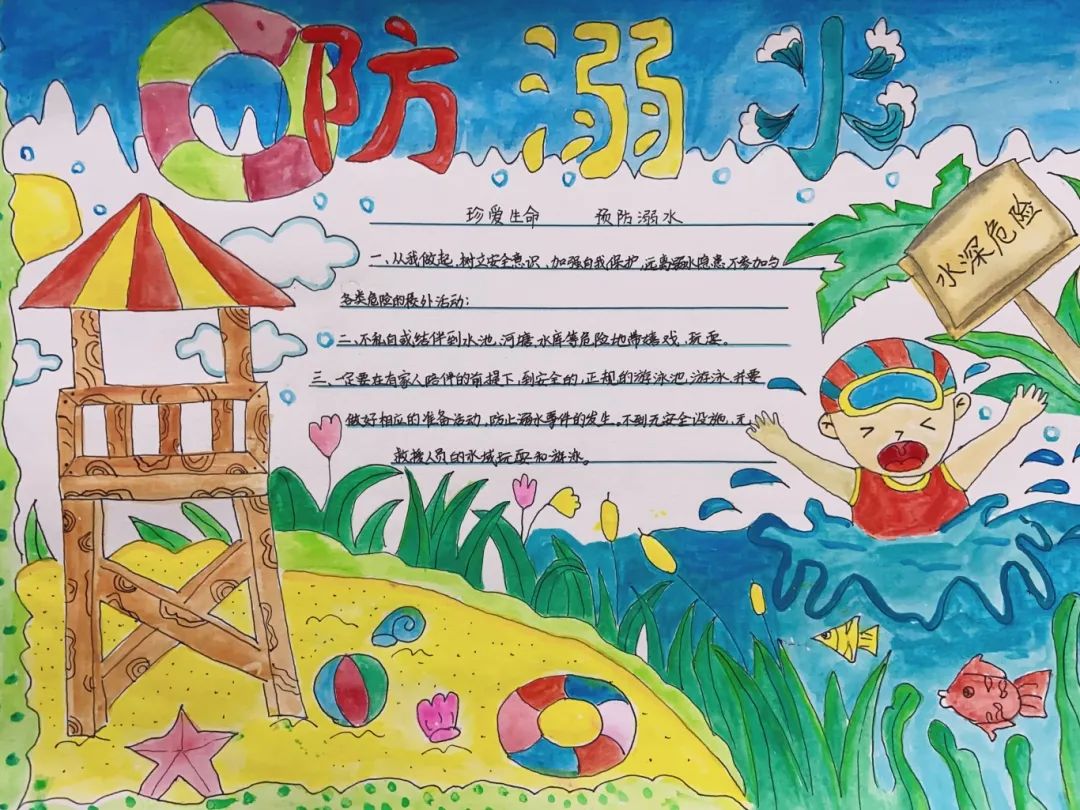 防溺水
珍爱生命 预防溺水
一、从我做起,树立安全意识、加强自我保护,远离溺水隐患不参加与
各类危险的校外活动;
二、不私自或结伴到水池、河塘、水库等危险地带嬉戏、玩耍。
三、一定要在有家人陪伴的前提下,到安全的,正规的游泳池,游泳并要
做好相应的准备活动,防止溺水事件的发生。不到无安全设施、无
救援人员的水域玩耍和游泳。
水深危险